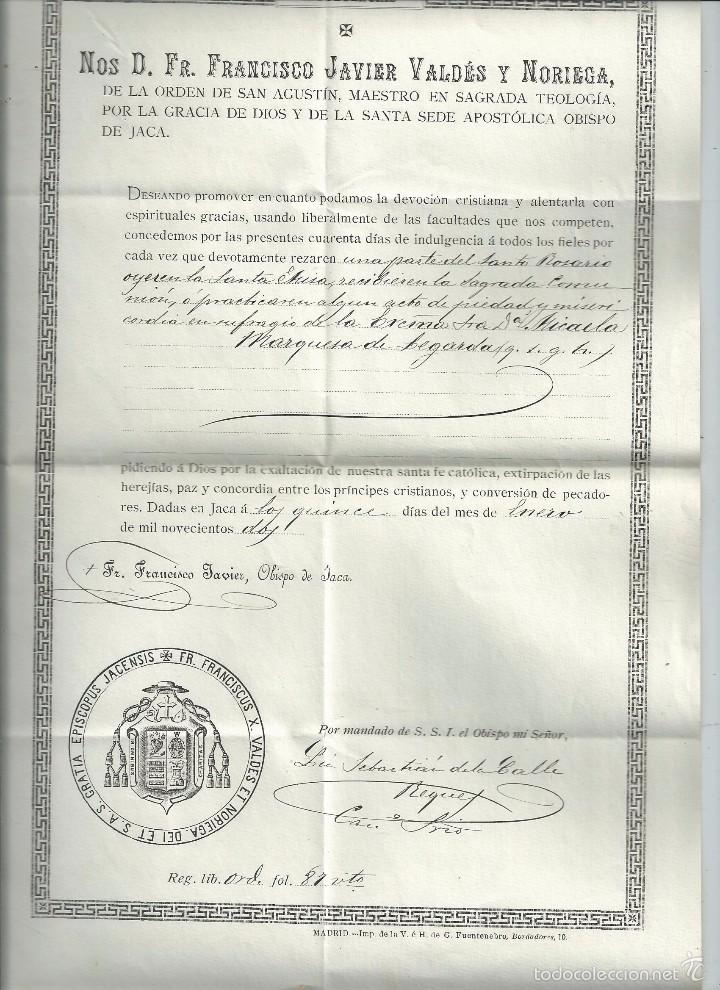 Nos D. Fr. Francisco Javier Valdés y Noriega,
DE LA ORDEN DE SAN AGUSTÍN, MAESTRO EN SAGRADA TEOLOGÍA,
POR LA GRACIA DE DIOS Y DE LA SANTA SEDE APOSTÓLICA OBISPO
DE JACA.
DESEANDO promover en cuanto podamos la devoción cristiana y alentarla con
espirituales gracias, usando liberalmente de las facultades que nos competen,
concedemos por las presentes cuarenta días de indulgencia á todos los fieles por
cada vez que devotamente rezaren una parte del Santo Rosario
oyeren la Santa Misa, recibieren la Sagrada Comu
nion, o practicaren algun acto de piedad y miseri
cordia en sufragio de la Excma Sra Dª Micaela
Marquesa de Legarda (q. s. g. h.)
pidiendo á Dios por la exaltación de nuestra santa fe católica, extirpación de las
herejías, paz y concordia entre los príncipes cristianos, y conversión de pecado-
res. Dadas en Jaca á los quince días del mes de Enero
de mil novecientos dos
+ Fr. Francisco Javier, Obispo de Jaca.
FR. FRANCISCUS X. VALDES ET NORIEGA DEI ET S. A. S. GRATIA EPISCOPUS JACENSIS
Por mandado de S. S. I. el Obispo mi Señor,
Lic Sebastián de la Calle
Can.º Srio
Reg. lib. Ord. fol. 87 vto
MADRID.—Imp. de la V. é H. de G. Fuentenebro, Bordadores, 10.
todocoleccion.net